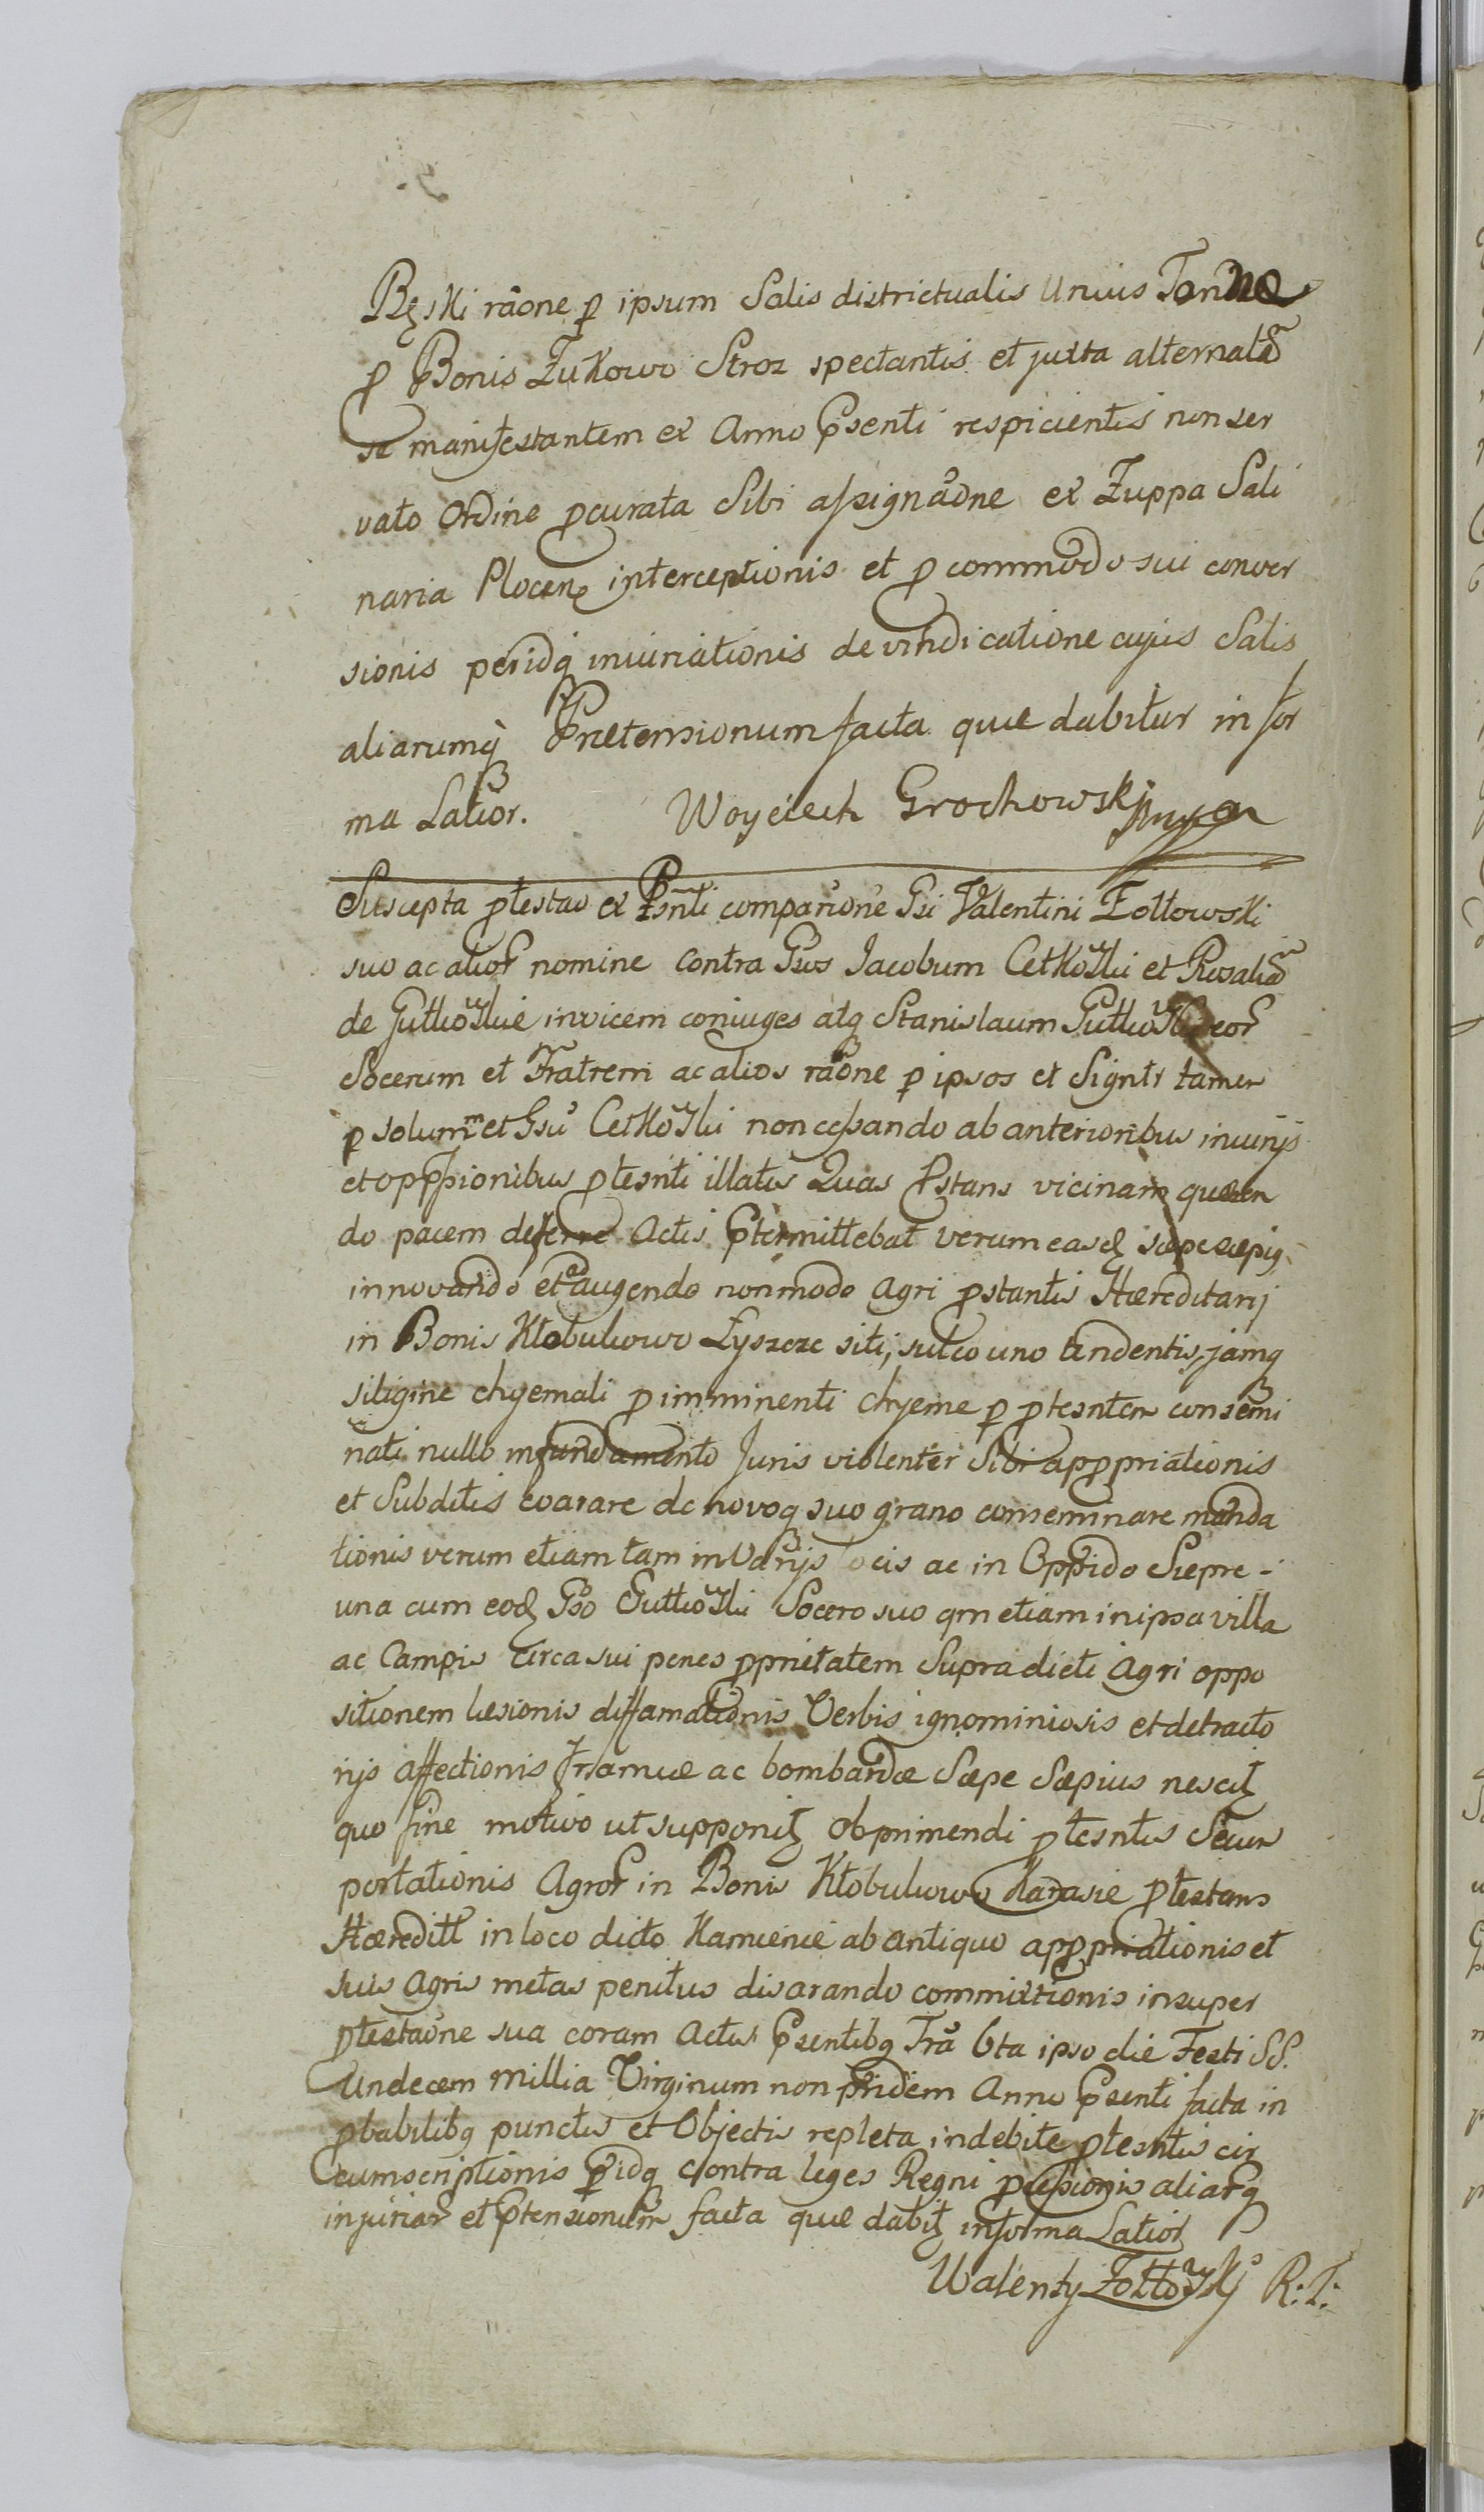 Bęski raone p ipsum Salis districtualis Unius Tonnæ
p Bonis Żukowo Stroz spectantis et juxta alternatã
se manifestantem ex Anno Psenti respicientis non ser
vato Ordine pcurata Sibi assignaone ex Zuppa Sali
naria Plocen interceptionis et p commodo sui conver
sionis peridq iniuriationis de vindicatione cujus Salis
aliarumq Prætensionum facta quæ dabitur in for
ma Latior. Woyciech Grochowski mpp
Suscepta ptestao ex Psnti comparione Gsi Valentini Żołtowski
suo ac alior nomine contra Gsos Jacobum Cetkowski et Rosaliã
de Gutkowskie invicem coniuges atq Stanislaum Gutkowski eor
Socerum et Fratrem ac alios raone p ipsos et Signtr tamen
p solummet Gsu Cetkowski non cessando ab anterioribus iniurijs
et oppssionibus ptesnti illatis Quas Pstans vicinam quæren
do pacem deferre Actis Ptermittebat verum easd sæpe sæpiq
innovando et adaugendo non modo Agri pstantis Hæreditarij
in Bonis Kłobukowo Łyszcze siti, sulco uno tendentis, jamq
siligine chyemali p imminenti chyeme p ptesntem consemi
nati nullo in fundamento Juris violenter Sibi apppriationis
et Subditis exarare de novoq suo grano conseminare manda
tionis verum etiam tam in Varijs locis ac in Oppido Sierpc
una cum eod Gso Gutkowski Socero suo qm etiam in ipsa villa
ac Campis circa sui penes pprietatem Supradicti Agri oppo
sitionem læsionis diffamationis Verbis ignominiosis et detracto
rijs affectionis Frameæ ac bombardæ Sæpe Sæpius nescit
quo fine motivo ut supponit Obprimendi ptesntis Secum
portationis Agror in Bonis Kłobukowo Karasie ptestans
Hæreditt in loco dicto Kamienie ab antiquo apppriationis et
suis Agris metas penitus disarando commixtionis insuper
ptestaone sua coram Actis Psentibq Fra 6ta ipso die Festi SS.
Undecem millia Virginum non pridem Anno Psenti facta in
pbabilibq punctis et Objectis repleta indebite ptesntis cir
cumscriptionis pidq contra leges Regni pcessionis aliarq
injuriar et Ptensionum facta quæ dabit in forma Latior
Walenty Żołtowskj R: T: